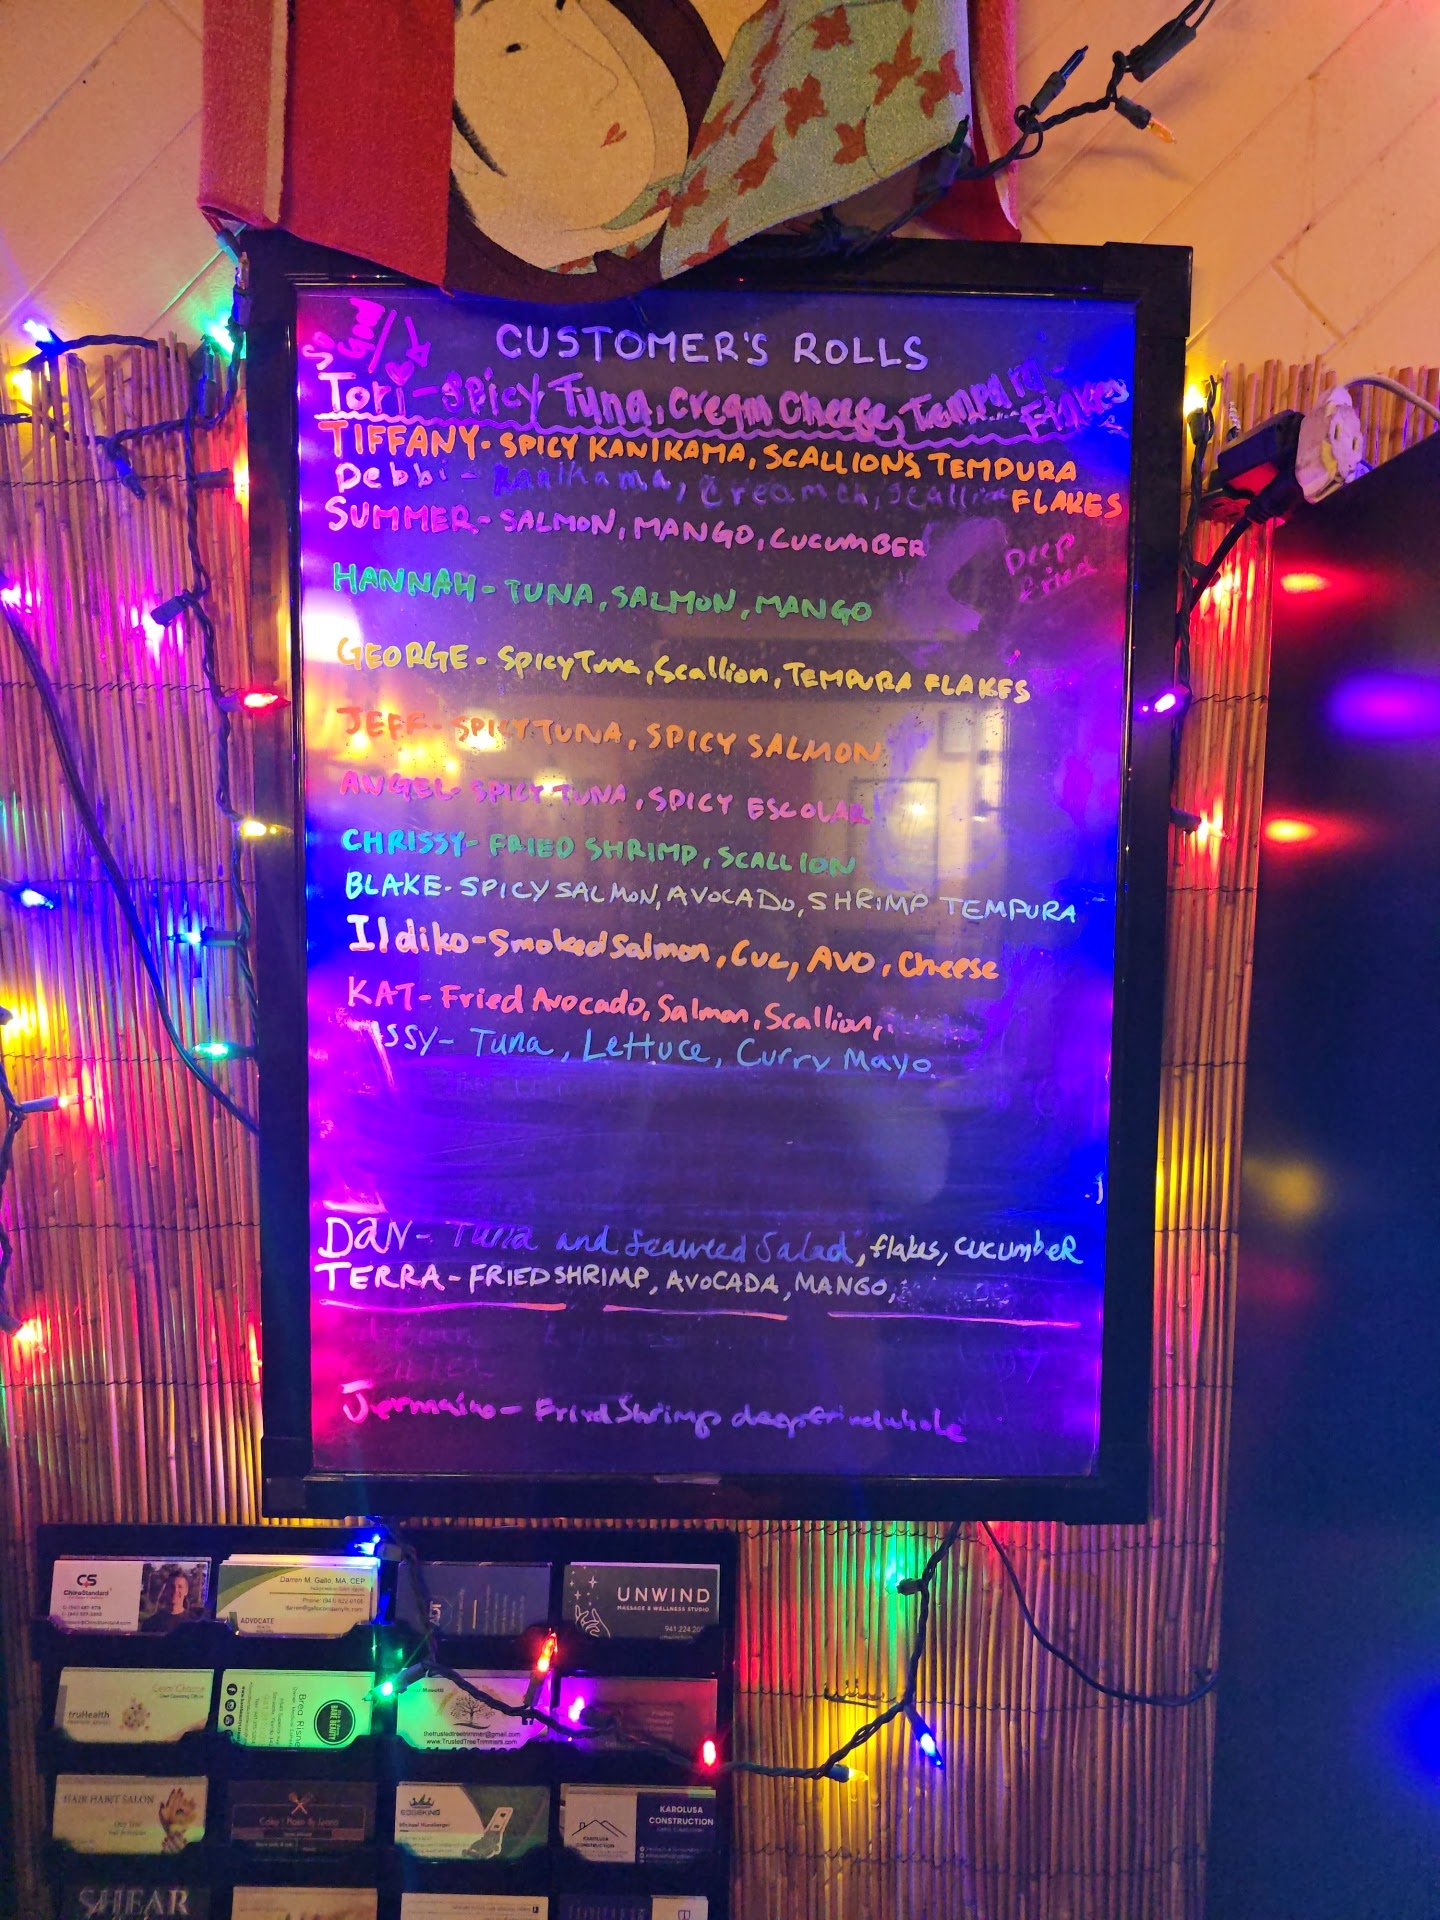 So
Good
CUSTOMER'S ROLLS
Tori - Spicy Tuna, Cream Cheese, Tempura
Flakes
TIFFANY - SPICY KANIKAMA, SCALLIONS, TEMPURA
FLAKES
Debbi - Kanikama, Cream ch, Scallion
SUMMER - SALMON, MANGO, CUCUMBER
Deep
fried
HANNAH - TUNA, SALMON, MANGO
GEORGE - Spicy Tuna, Scallion, TEMPURA FLAKES
JEFF - SPICY TUNA, SPICY SALMON
ANGEL - SPICY TUNA, SPICY ESCOLAR
CHRISSY - FRIED SHRIMP, SCALLION
BLAKE - SPICY SALMON, AVOCADO, SHRIMP TEMPURA
Ildiko - Smoked Salmon, Cuc, AVO, Cheese
KAT - Fried Avocado, Salmon, Scallion,
SSY - Tuna, Lettuce, Curry Mayo
DaN - Tuna and Seaweed Salad, flakes, cucumbeR
TERRA - FRIED SHRIMP, AVOCADA, MANGO,
- Fried Shrimp deep fried whole
CS
ChiroStandard
Darren M. Gallo, MA, CEP
ADVOCATE
UNWIND
MASSAGE & WELLNESS STUDIO
941.224.20
truHealth
thetrustedtreetrimmer@gmail.com
www.TrustedTreeTrimmers.com
HAIR HABIT SALON
EDGEKING
KAROLUSA
CONSTRUCTION
KAROLUSA
CONSTRUCTION
SHEAR